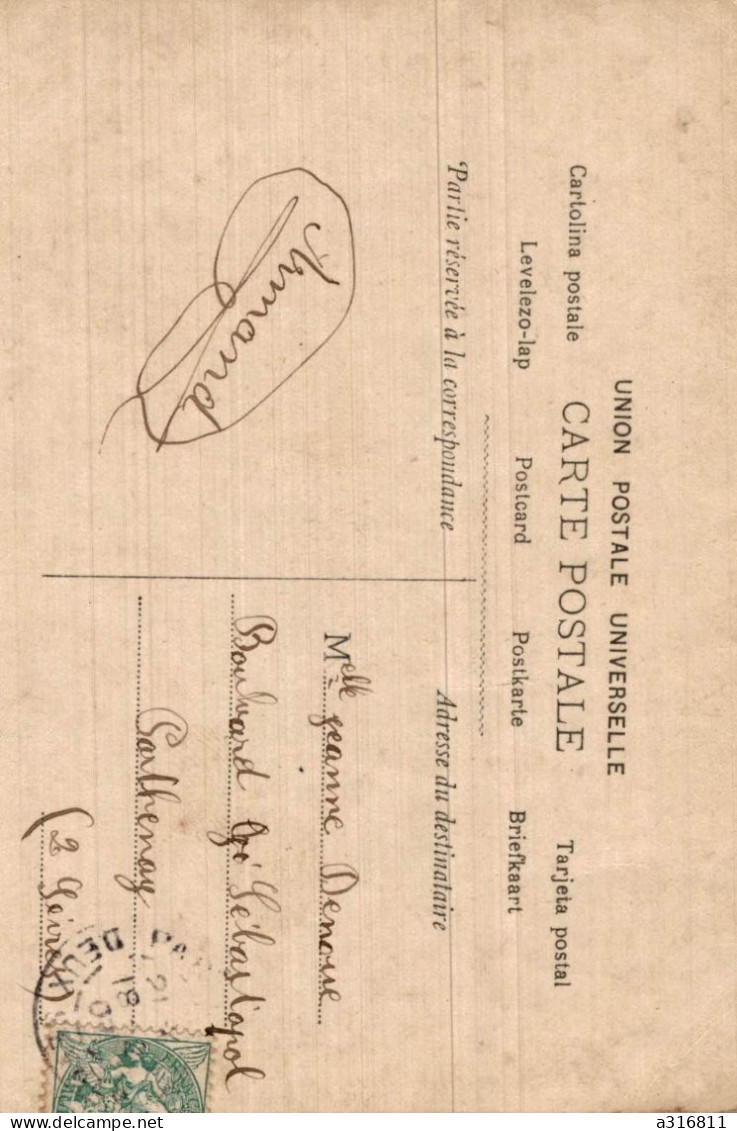 UNION POSTALE UNIVERSELLE
Cartolina postale CARTE POSTALE Tarjeta postal
Levelezo-lap Postcard Postkarte Briefkaart
Partie réservée à la correspondance
Adresse du destinataire
Armand
Melle Jeanne Denoue
Boulvard Sébastopol
Parthenay
(2 Sèvres)
delcampe.net
a316811